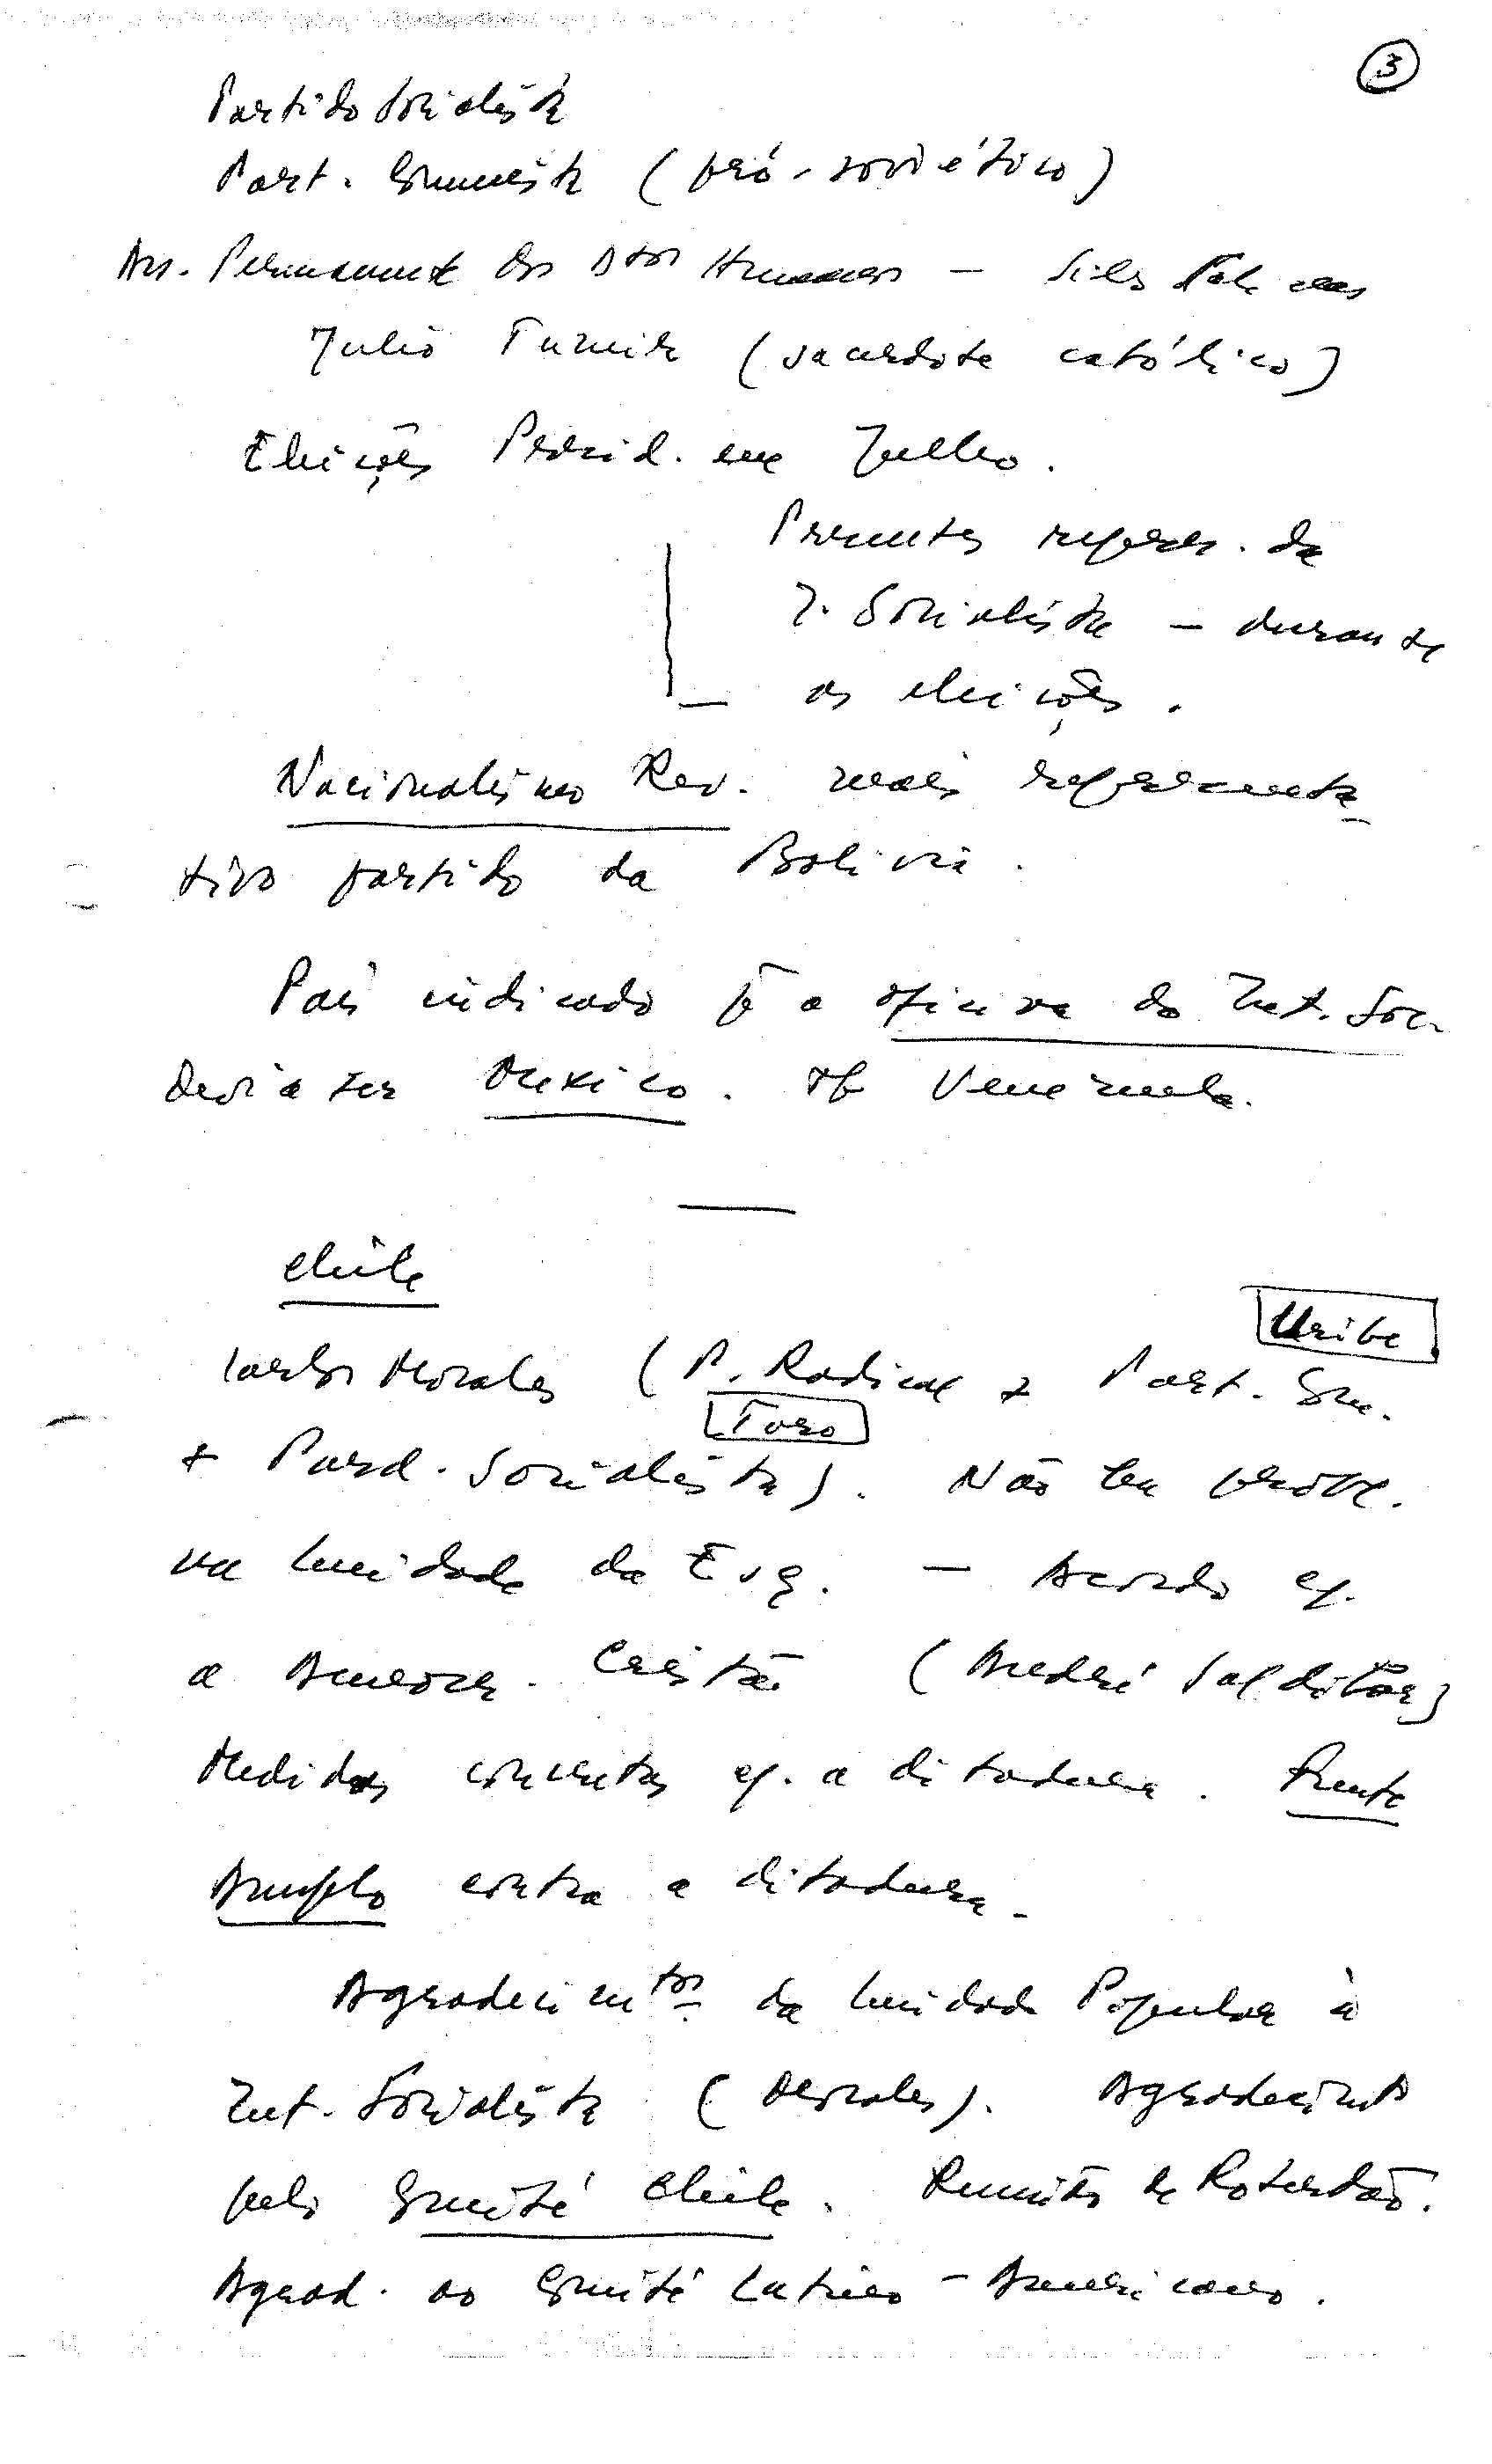 3
Partido Socialista
Part. Comunista (pró-soviético)
Ass. Permanente dos Dtos Humanos –
Julio Tumiri (sacerdote católico)
Eleições Presid. em Julho.
Presentes repres. da
I. Socialista – durante
as eleições.
Nacionalismo Rev. mais representa
tivo partido da Bolivia.
País indicado p/ a oficina da Int. Soc.
devia ser México. ob Venezuela.
Chile
Uribe
Carlos Morales (P. Radical + Part. Com.
Toro
+ Part. Socialista). Não há probl.
na Unidade da Esq. – Acordo c/.
a Democr. Cristã (André Saldivar)
Medidas concretas c/. a ditadura. Frente
Amplo contra a ditadura.
Agradecimtos da Unidade Popular à
Int. Socialista (Morales). Agradecimto
pelo Comité Chile. Reunião de Roterdão.
Agrad. ao Comité Latino-Americano.